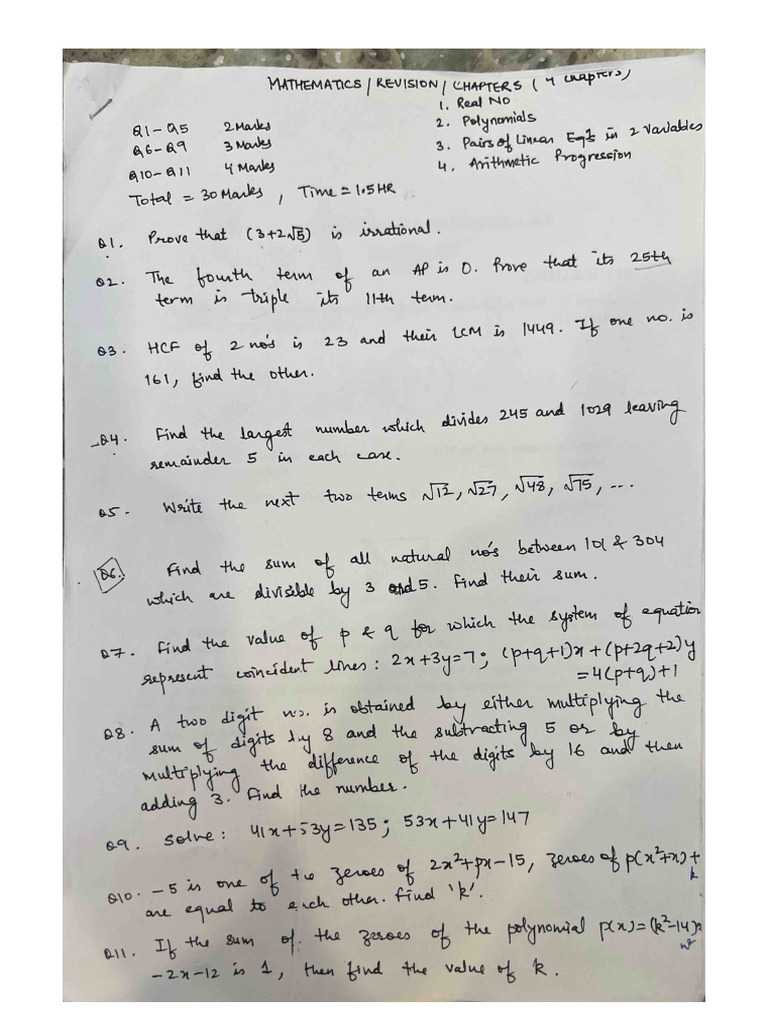 MATHEMATICS / REVISION / CHAPTERS ( 4 chapters)
1. Real No
Q1 - Q5 2 Marks
2. Polynomials
Q6 - Q9 3 Marks
3. Pairs of Linear Eqⁿs in 2 Variables
Q10 - Q11 4 Marks
4. Arithmetic Progression
Total = 30 Marks , Time = 1.5 HR
Q1. Prove that (3+2√5) is irrational.
Q2. The fourth term of an AP is 0. Prove that its 25th
term is triple its 11th term.
Q3. HCF of 2 no's is 23 and their LCM is 1449. If one no. is
161, find the other.
Q4. Find the largest number which divides 245 and 1029 leaving
remainder 5 in each case.
Q5. Write the next two terms √12, √27, √48, √75, ...
Q6. Find the sum of all natural no's between 101 & 304
which are divisible by 3 and 5. Find their sum.
Q7. Find the value of p & q for which the system of equation
represent coincident lines : 2x+3y=7 ; (p+q+1)x+(p+2q+2)y
=4(p+q)+1
Q8. A two digit no. is obtained by either multiplying the
sum of digits by 8 and the subtracting 5 or by
multiplying the difference of the digits by 16 and then
adding 3. Find the number.
Q9. Solve : 41x+53y=135 ; 53x+41y=147
Q10. -5 is one of the zeroes of 2x²+px-15, zeroes of p(x²+x)+
k
are equal to each other. Find 'k'.
Q11. If the sum of the zeroes of the polynomial p(x)=(k²-14)x
-2x-12 is 1, then find the value of k.